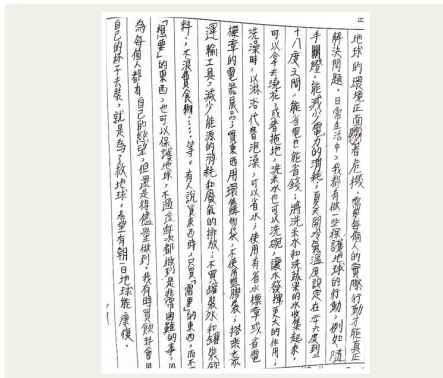 地球的環境正面臨著危機，需要每個人的實際行動才能真正
解決問題。日常生活中，我都有做一些保護地球的行動，例如：隨
手關燈，能減少電力的消耗；夏天開冷氣溫度設定在二十六度到二
十八度之間，能省電也能省錢；將洗米水和洗蔬果的水收集起來，
可以拿去澆花，或者拖地，洗米水也可以洗碗，讓水發揮更大的作用；
洗澡時，以淋浴代替泡澡，可以省水；使用有省水標章或省電
標章的電器產品；買東西用環保購物袋，不使用塑膠袋；搭乘大眾
運輸工具，減少能源的消耗和廢氣的排放；不買罐裝水和罐裝飲
料；不浪費食物……等。有人說買東西時，只買「需要」的東西，而不
「想要」的東西，也可以保護地球，不過這每次都做到是非常困難的事，因
為每個人都有自己的慾望，但還是得儘量做到。我有時買飲料會用
自己的杯子去裝，就是為了救地球。希望有朝一日地球能康復。